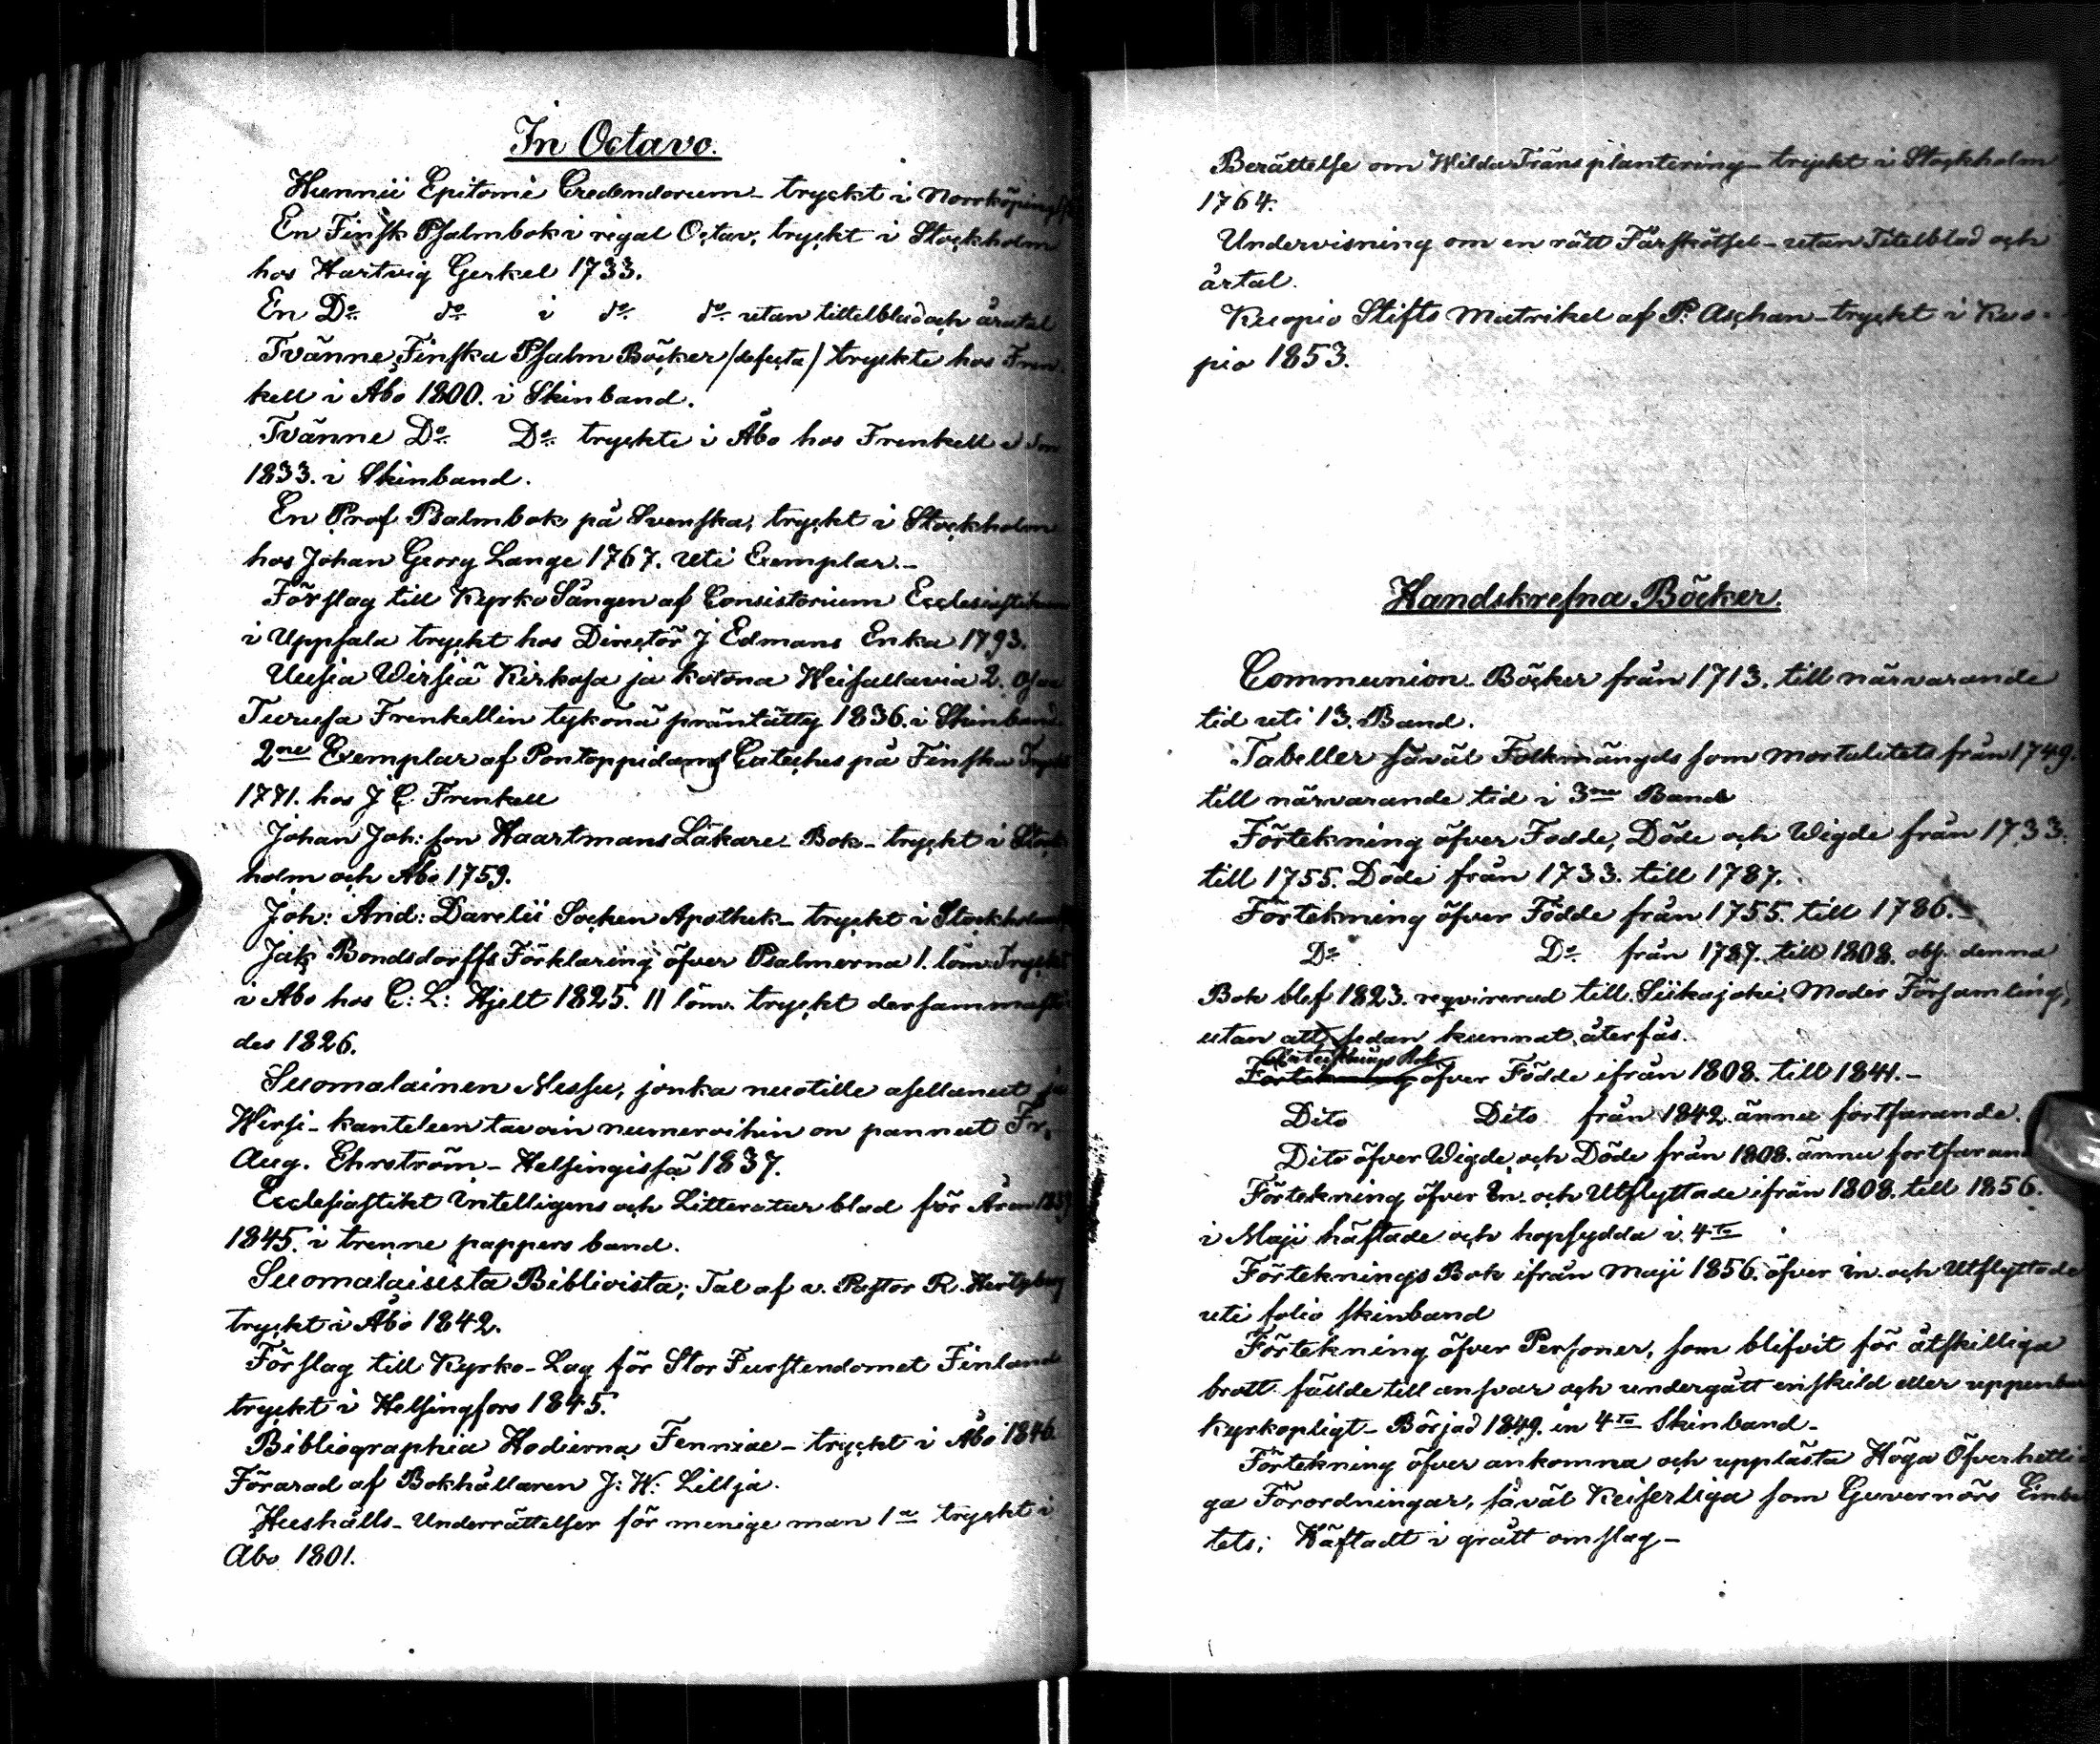 In Octavo.
Hunnii Epitome Credendorum - tryckt i Norrköping
En Finsk Psalmbok i regal Octav, tryckt i Stockholm
hos Hartvig Gerkel 1733.
En Do do i do do utan tittelblad och åratal
Tvänne Finska Psalm Böcker /defecta/ tryckte hos Fren-
kell i Åbo 1800. i Skinband.
Tvänne Do Do tryckte i Åbo hos Frenkell
1833. i Skinband.
En Prof Psalmbok på Svenska, tryckt i Stockholm
hos Johan Georg Lange 1767. uti Exemplar.-
Förslag till Kyrko Sången af Consistorium Ecclesiastikum
i Uppsala tryckt hos Directör J Edmans Enka 1793.
Uusia Wirsiä Kirkosa ja kotona Weisattavia 2. Osa
Turusa Frenkellin tykönä präntätty 1836. i Skinband
2ne Exemplar af Pontoppidans Cateches på Finska Tryckt
1771. hos J C Frenkell
Johan Joh: son Haartmans Läkare Bok - tryckt i Stock
holm och Åbo 1759.
Joh: And: Darelii Socken Apothek - tryckt i Stockholm
Jak Bondsdorffs Förklaring öfver Psalmerna 1. tom. Tryckt
i Åbo hos C: L: Hjelt 1825. II tom. tryckt dersammastä
des 1826.
Suomalainen Messu, jonka nuotille asettanut ja
Wirsi-kanteleen tavoin numeroihin on pannut Fr.
Aug. Ehrström - Helsingissä 1837.
Ecclesiastikt Intelligens och Litteratur blad för Åren 1839
1845. i trenne pappers band.
Suomalaisesta Bibliosta; Tal af v. Pastor R. Hertzberg
tryckt i Åbo 1842.
Förslag till Kyrko-Lag för Stor Furstendomet Finland
tryckt i Helsingfors 1845.
Bibliographia Hodierna Fenniae - tryckt i Åbo 1846.
Förarad af Bokhållaren J: W: Lillja.
Hushålls-Underrättelser för menige man 1a tryckt i
Åbo 1801.
Berättelse om Wilda Träns plantering - tryckt i Stockholm
1764.
Undervisning om en rätt Fårskötsel - utan Titelblad och
årtal.
Kuopio Stifts Matrikel af P. Aschan - tryckt i Kuo-
pio 1853.
Handskrefna Böcker.
Communion-Böcker från 1713. till närvarande
tid uti 13. Band.
Tabeller såväl Folkmängds som Mortalitets från 1749.
till närvarande tid i 3ne Band
Förtekning öfver Fodde, Döde och Wigde från 1733.
till 1755. Döde från 1733. till 1787.
Förtekning öfver Födde från 1755. till 1786.-
Do Do från 1787. till 1808. obs. denna
Bok blef 1823. reqvirerad till Siikajoki Moder Församling,
utan att sedan kunnat återfås.
Antecknings Bok
Förtekning öfver Födde ifrån 1808. till 1841.-
Dito Dito från 1842. ännu fortfarande.
Dito öfver Wigde och Döde från 1808. ännu fortfaran
Förtekning öfver In- och Utflyttade ifrån 1808. till 1856.
i Maji häftade och hopsydda i 4to
Förteknings Bok ifrån Maji 1856. öfver in- och Utflyttade
uti folio skinband
Förtekning öfver Personer, som blifvit för åtskilliga
brott fällde till ansvar och undergått enskild eller uppenbar
Kyrkopligt - Börjad 1849. in 4to Skinband -
Förtekning öfver ankomna och upplästa Höga Öfverhetli
ga Förordningar, såväl Keiserliga som Guvernörs Embe
tets; Häftadt i grått omslag -